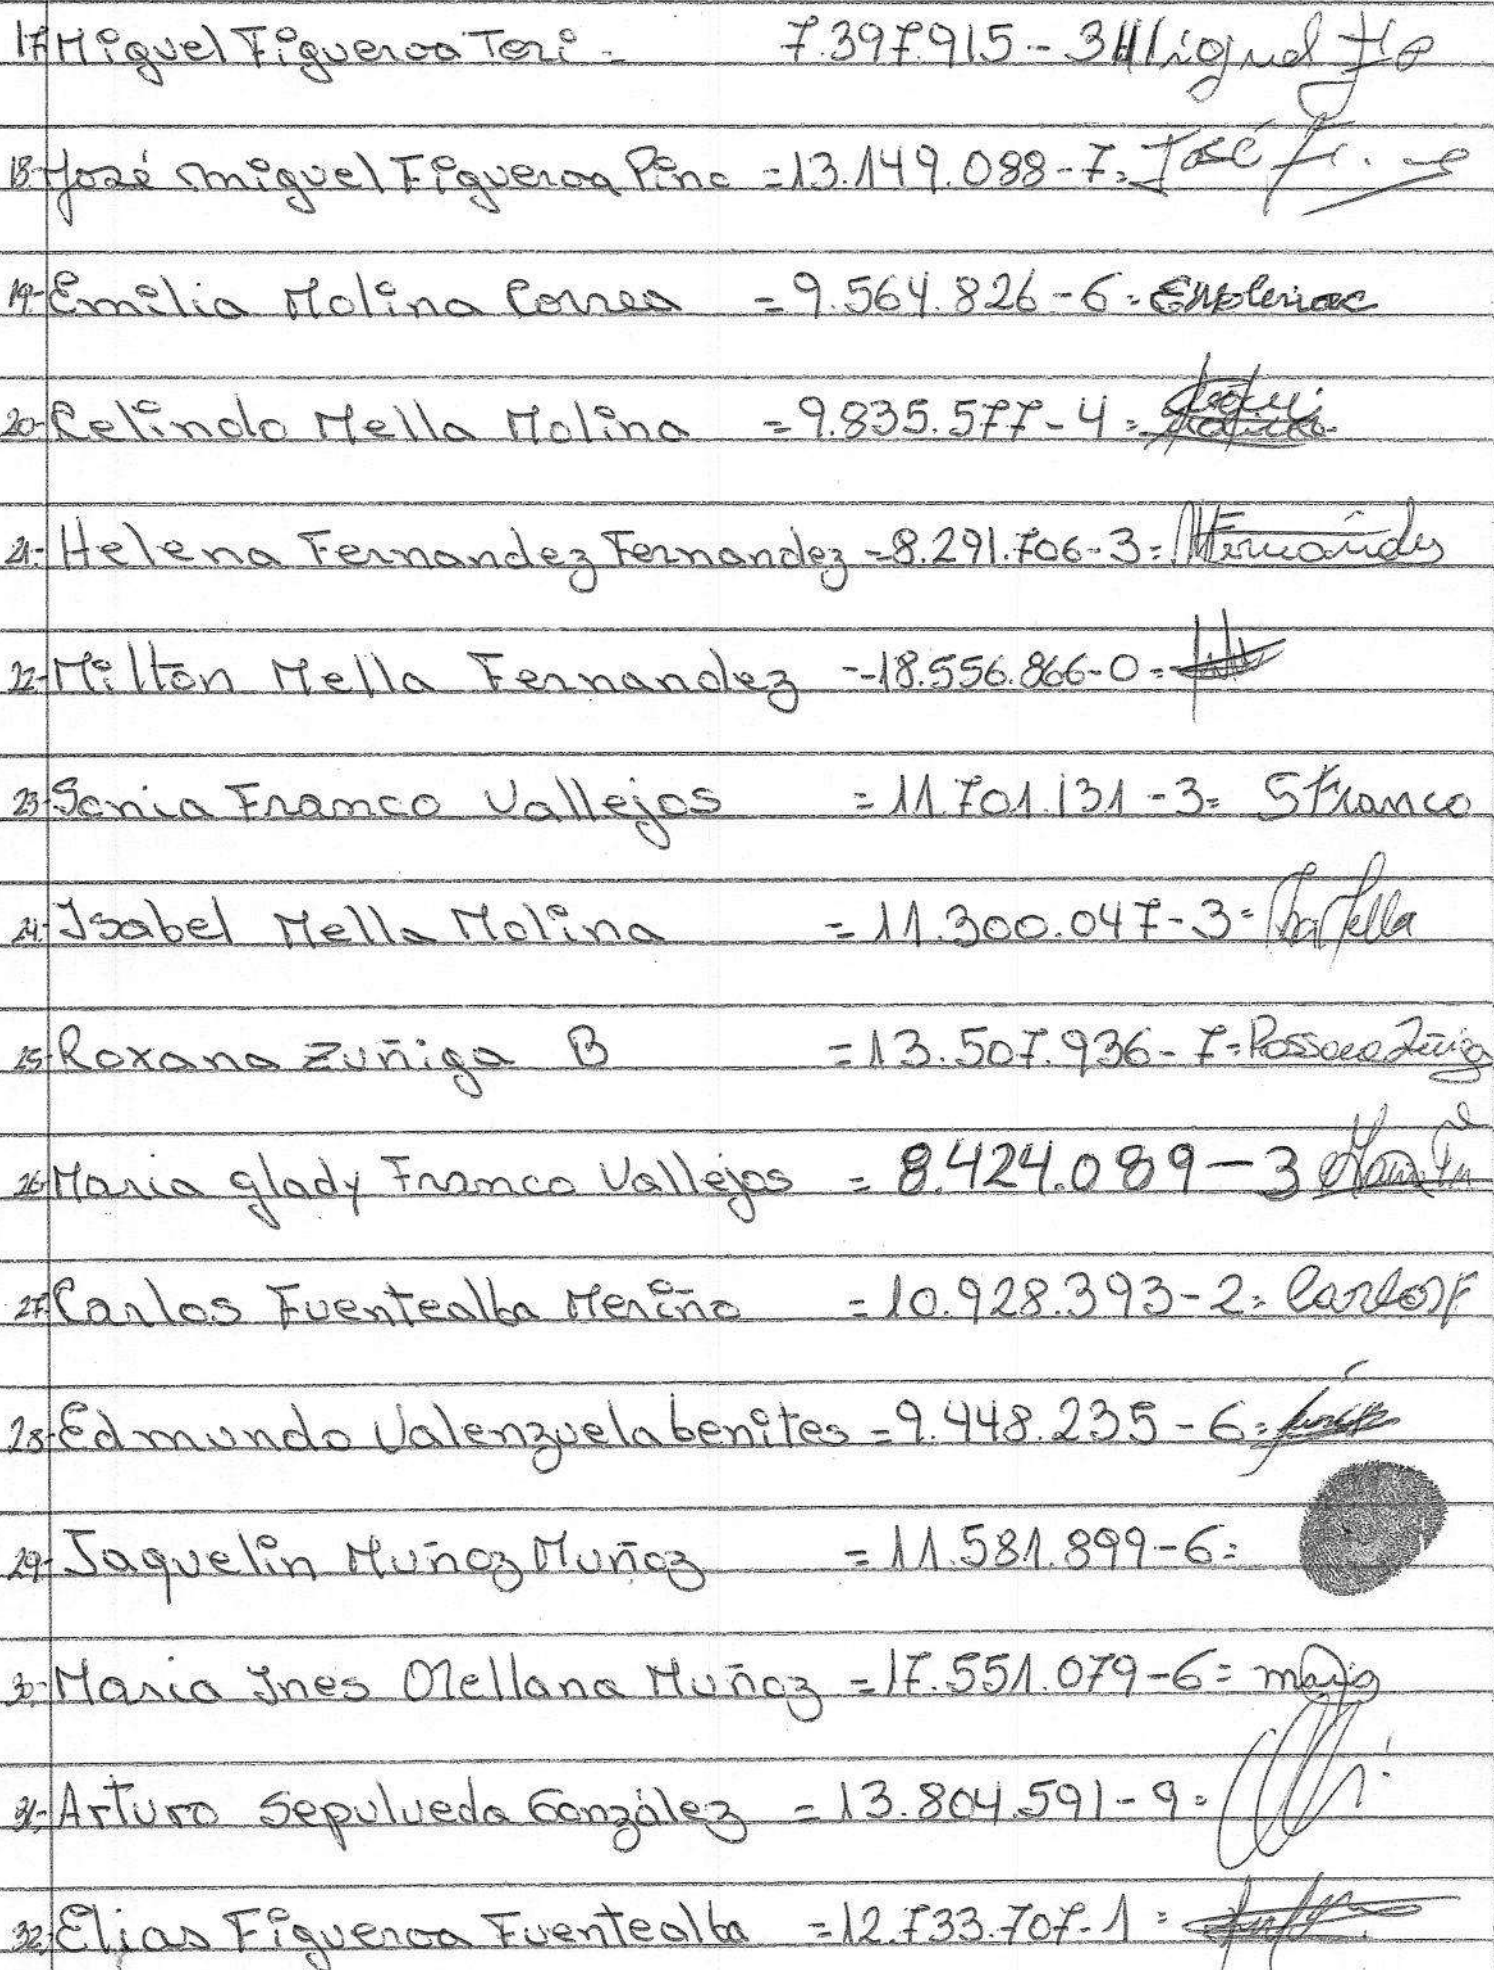 17 Miguel Figueroa Tori = 7.397.915-3 Miguel
18- José Miguel Figueroa Pino = 13.149.088-7= José
19- Emilia Molina Correa = 9.564.826-6=
20- Celindo Mella Molina = 9.835.577-4=
21- Helena Fernandez Fernandez = 8.291.706-3= Fernández
22- Milton Mella Fernandez =-18.556.866-0=
23- Sonia Franco Vallejos = 11.701.131-3= S Franco
24- Isabel Mella Molina = 11.300.047-3= Isa Mella
25- Roxana Zuñiga B = 13.507.936-7= Rossana Zuñiga
26- Maria glady Franco Vallejos = 8.424.089-3
27- Carlos Fuentealba Meriño = 10.928.393-2= Carlos F
28- Edmundo Valenzuela benites = 9.448.235-6=
29- Jaquelin Muñoz Muñoz = 11.581.899-6=
30- Maria Ines Orellana Muñoz = 17.551.079-6=
31- Arturo Sepulveda González = 13.804.591-9=
32- Elias Figueroa Fuentealba = 12.733.707-1=